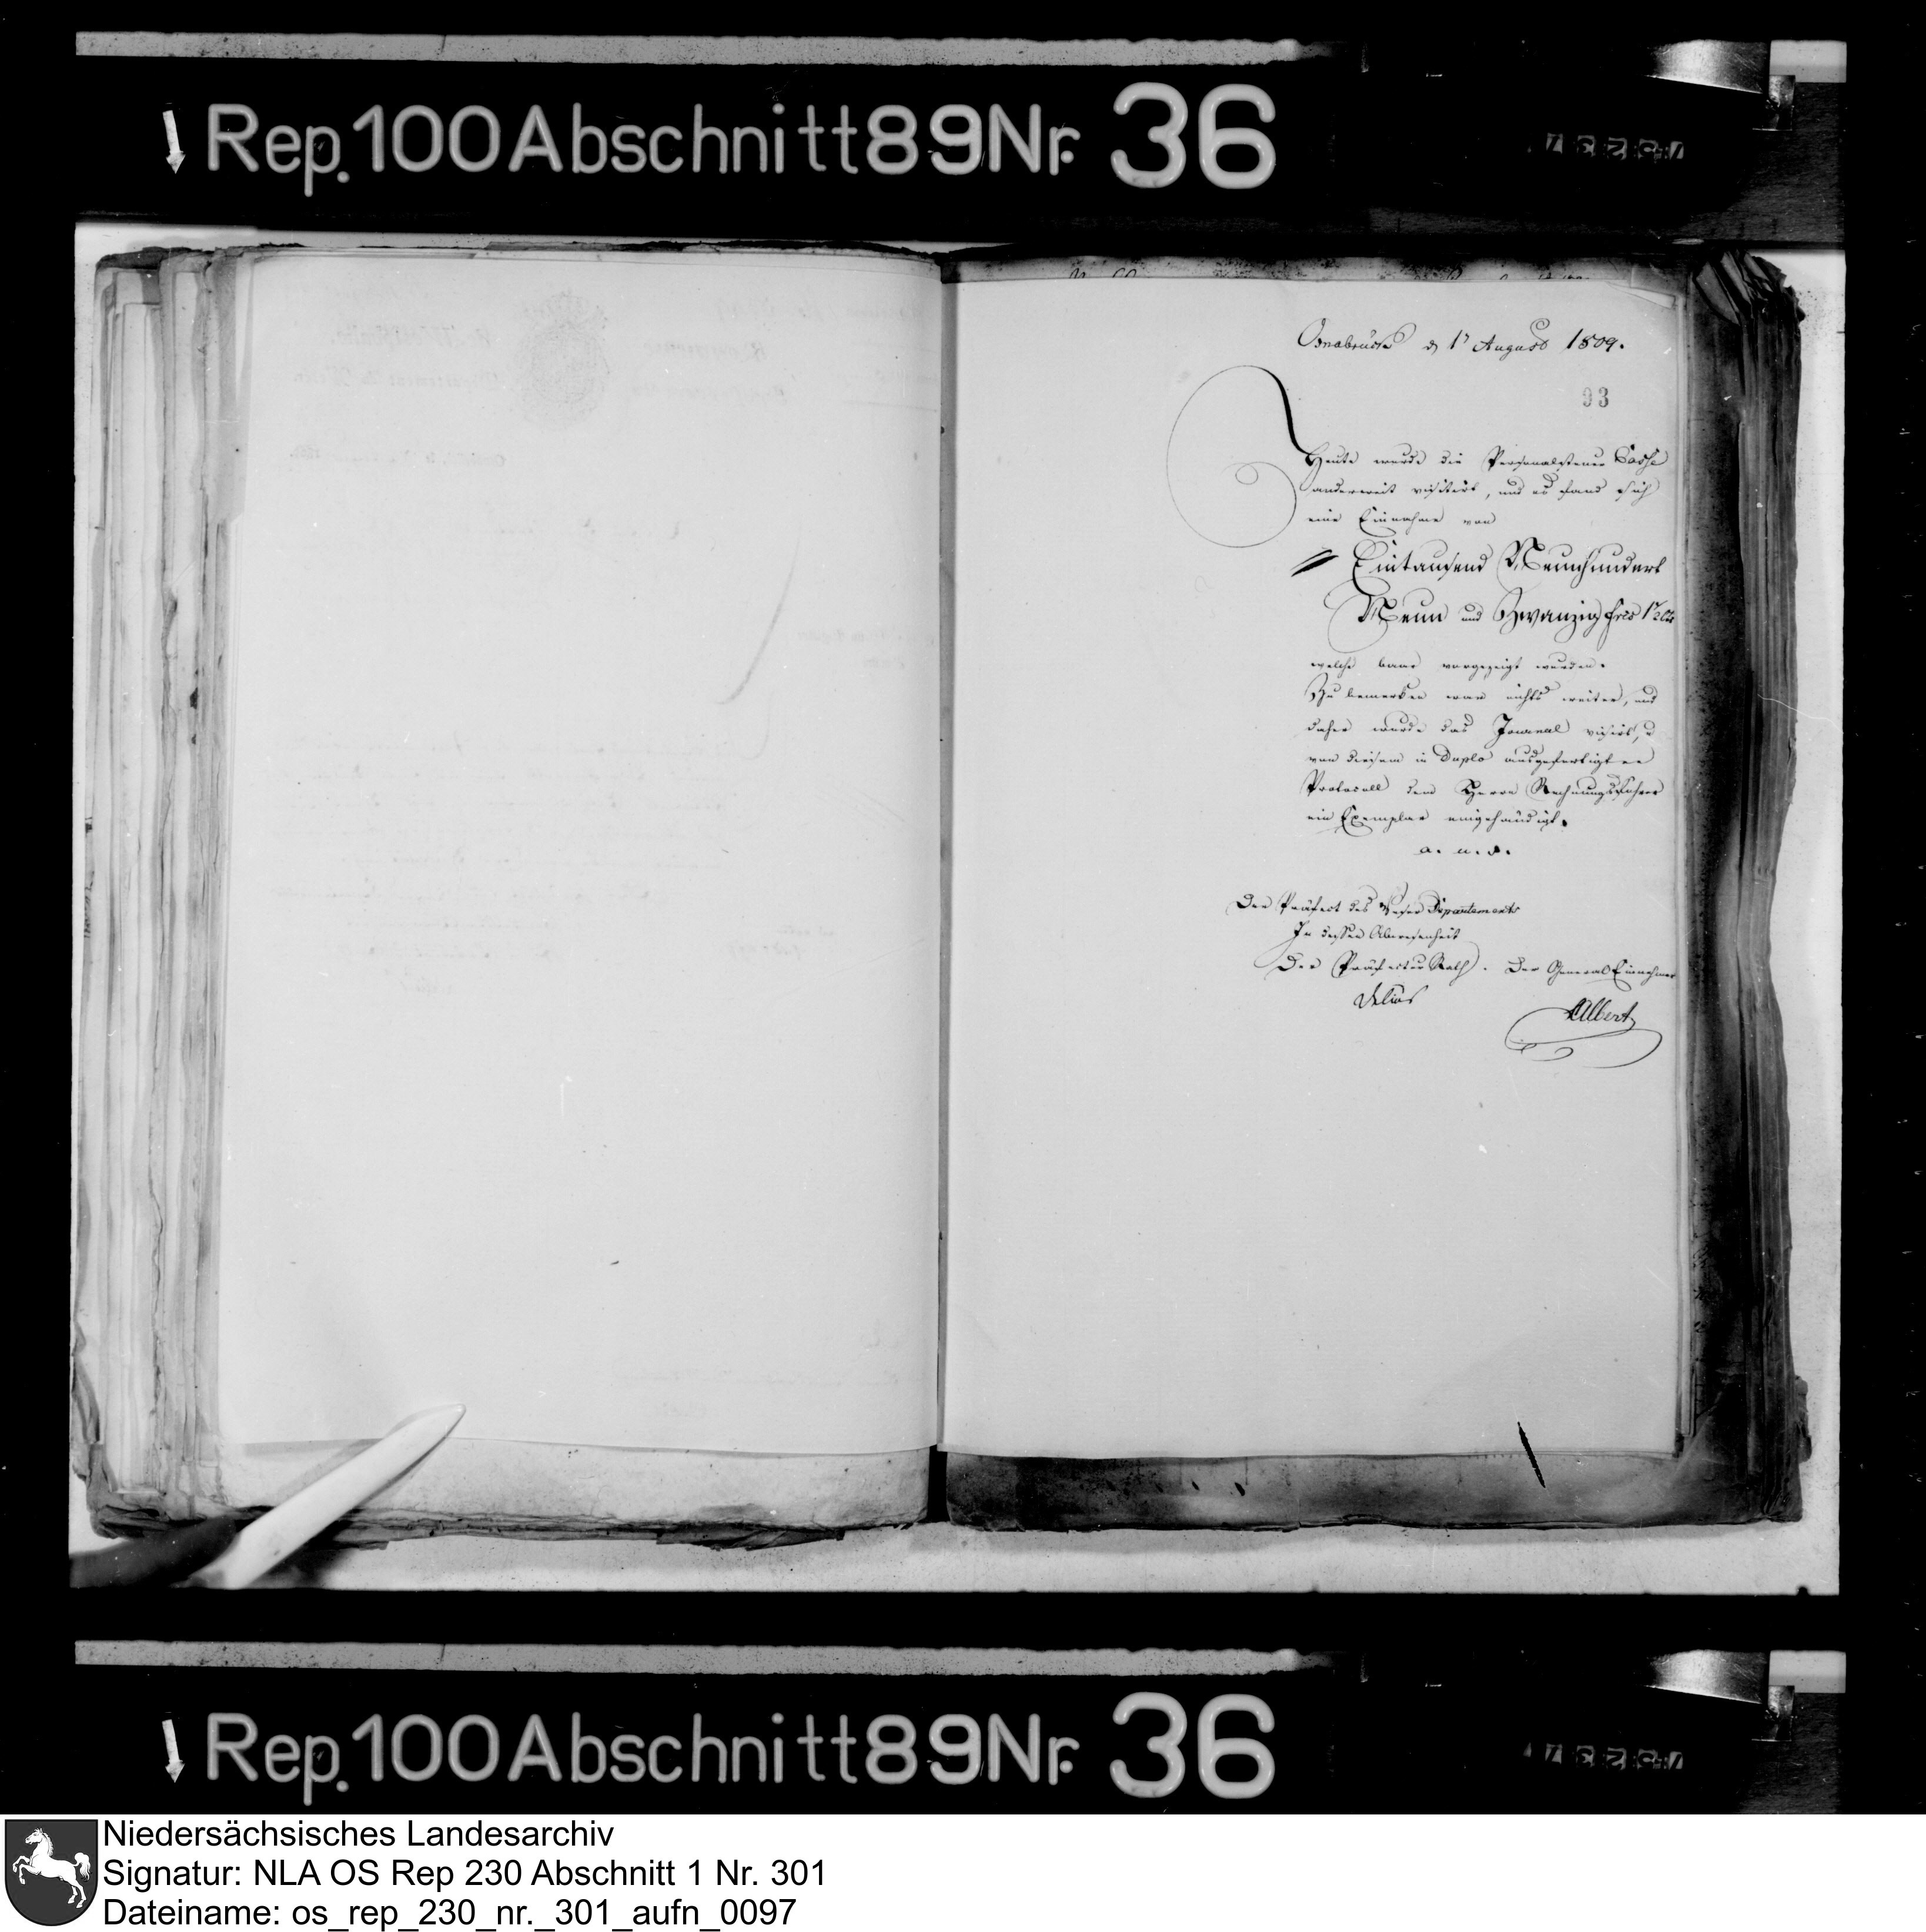 Rep. 100 Abschnitt 89 Nr. 36
Osnabrück d 1t August 1809.
93
Heute wurde die Personalsteuer Casse
anderweit visitirt, und es fand sich
eine Einnahme von
Eintausend Neunhundert
Neun und Zwanzig frcs
welche baar vorgezeigt wurden.
Zu bemerken war nichts weiter, und
daher wurde das Journal visirt, u
von diesem in Duplo ausgefertigten
Protocoll dem Herrn Rechnungsführer
ein Exemplar eingehändigt.
a. u. s.
Der Präfect des Weser Departements
In dessen Abwesenheit
Der Präfectur Rath. Der General Einnehmer
Delius
Albert
Rep. 100 Abschnitt 89 Nr. 36
Niedersächsisches Landesarchiv
Signatur: NLA OS Rep 230 Abschnitt 1 Nr. 301
Dateiname: os_rep_230_nr._301_aufn_0097